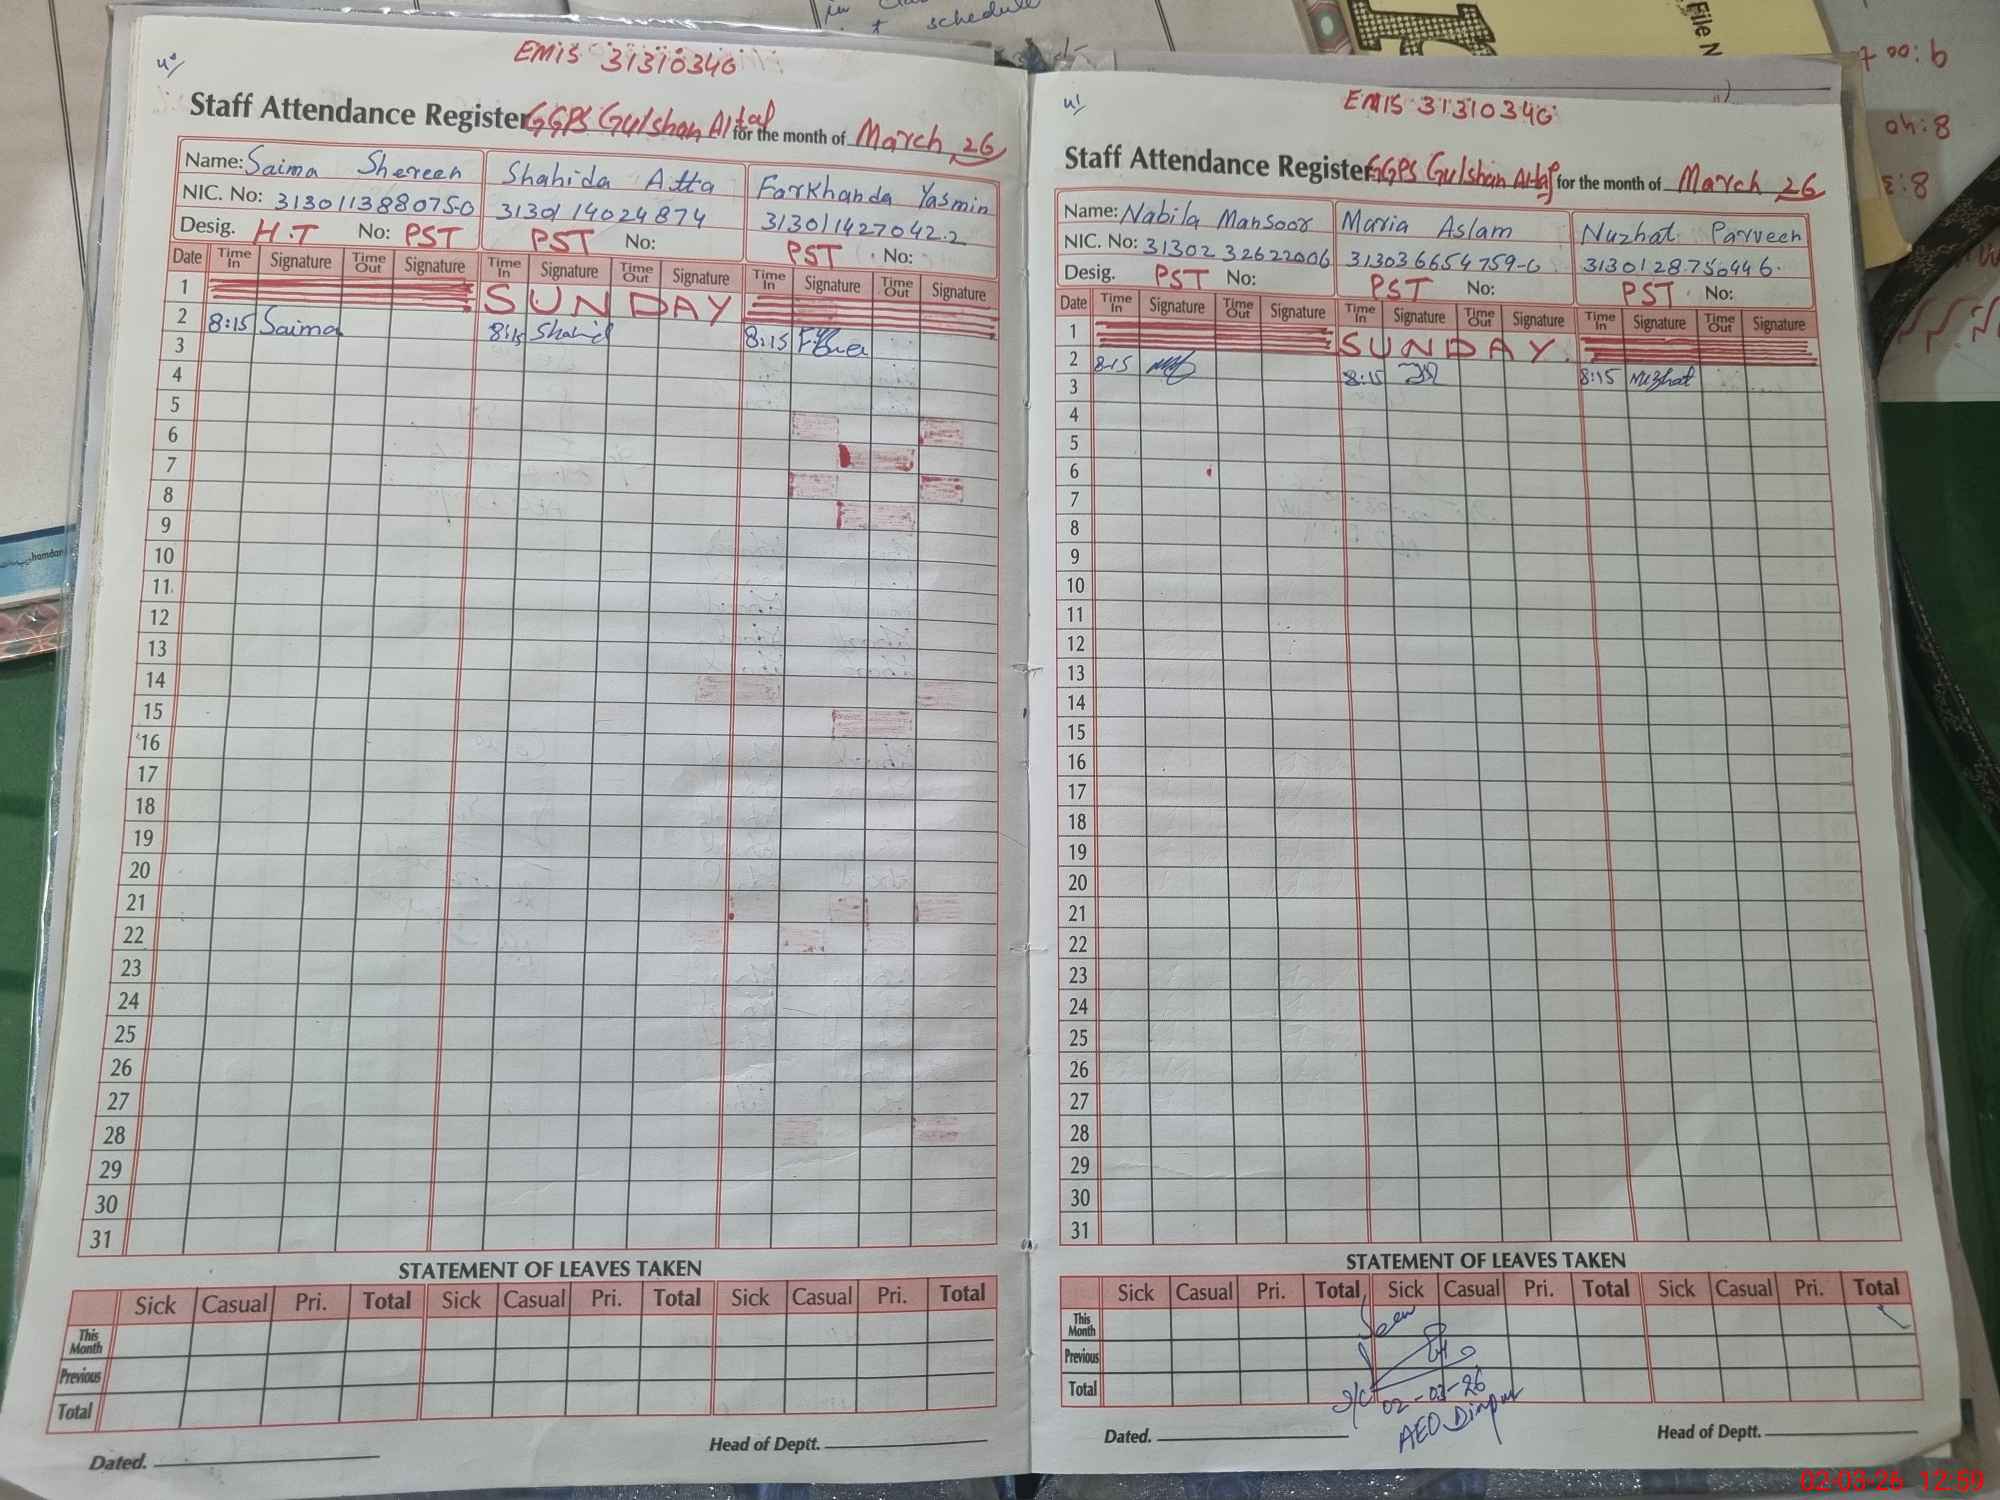 in
schedule
File N
9:00
8:40
8:3
hamdar
EMIS 31310340
Staff Attendance Register GGPS Gulshan Altaf for the month of March 26
Name: Saima Shereen Shahida Atta Farkhanda Yasmin
NIC. No: 313011388075-0 3130114024874 313011427042.2
Desig. H.T No: PST PST No: PST No:
Date Time In Signature Time Out Signature Time In Signature Time Out Signature Time In Signature Time Out Signature
1 SUNDAY
2 8:15 Saima 8:15 Shahid 8:15
3
4
5
6
7
8
9
10
11
12
13
14
15
16
17
18
19
20
21
22
23
24
25
26
27
28
29
30
31
STATEMENT OF LEAVES TAKEN
Sick Casual Pri. Total Sick Casual Pri. Total Sick Casual Pri. Total
This Month
Previous
Total
Dated. Head of Deptt.
EMIS 31310340
Staff Attendance Register GGPS Gulshan Altaf for the month of March 26
Name: Nabila Mansoor Maria Aslam Nuzhat Parveen
NIC. No: 31302 32622006 313036654759-6 3130128750446
Desig. PST No: PST No: PST No:
Date Time In Signature Time Out Signature Time In Signature Time Out Signature Time In Signature Time Out Signature
1 SUNDAY
2 8:15 8:15 8:15 Nuzhat
3
4
5
6
7
8
9
10
11
12
13
14
15
16
17
18
19
20
21
22
23
24
25
26
27
28
29
30
31
STATEMENT OF LEAVES TAKEN
Sick Casual Pri. Total Sick Casual Pri. Total Sick Casual Pri. Total
This Month
Previous
Total
Seen
02-03-26
AEO Dinpur
Dated. Head of Deptt.
02-03-26 12:59